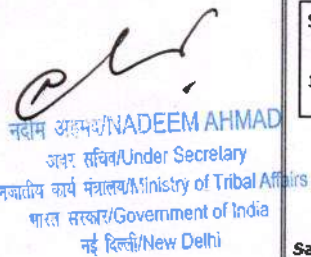 नदीम अहमद/NADEEM AHMAD
अवर सचिव/Under Secretary
नजातीय कार्य मंत्रालय/Ministry of Tribal Affairs
भारत सरकार/Government of India
नई दिल्ली/New Delhi